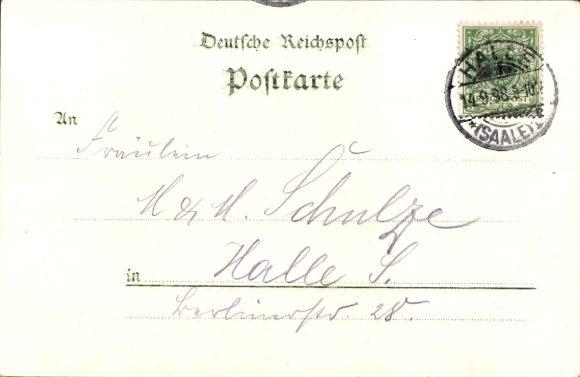 Deutsche Reichspost
Postkarte
HALLE
14.9.98.
(SAALE)
An
Fräulein
M & M. Schulze
in Halle S.
Berlinerstr. 28.